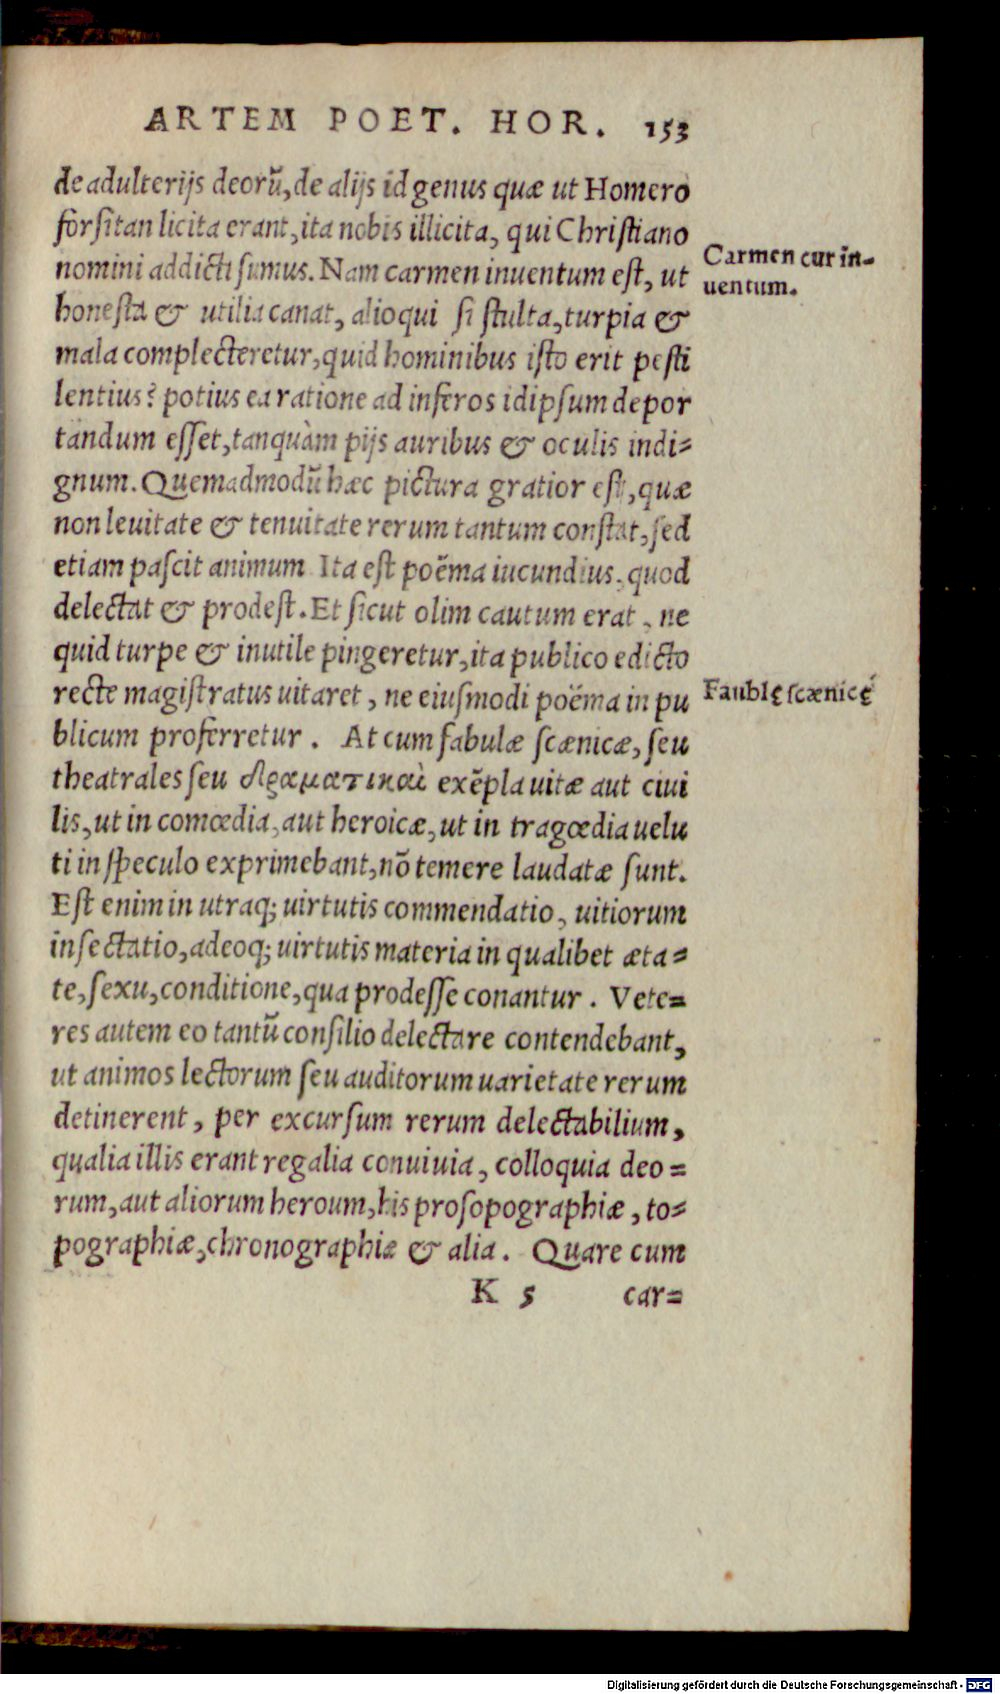 ARTEM POET. HOR. 153
de adulterijs deorũ, de alijs id genus quæ ut Homero
forsitan licita erant, ita nobis illicita, qui Christiano
nomini addicti sumus. Nam carmen inuentum est, ut
Carmen cur in-
uentum.
honesta & utilia canat, alioqui si stulta, turpia &
mala complecteretur, quid hominibus isto erit pesti
lentius? potius ea ratione ad inferos idipsum depor
tandum esset, tanquàm pijs auribus & oculis indi-
gnum. Quemadmodũ hæc pictura gratior est, quæ
non leuitate & tenuitate rerum tantum constat, sed
etiam pascit animum. Ita est poëma iucundius, quod
delectat & prodest. Et sicut olim cautum erat, ne
quid turpe & inutile pingeretur, ita publico edicto
recte magistratus uitaret, ne eiusmodi poëma in pu
Faublę scænicę
blicum proferretur. At cum fabulæ scænicæ, seu
theatrales seu δραματικαὶ exẽpla uitæ aut ciui
lis, ut in comœdia, aut heroicæ, ut in tragœdia uelu
ti in speculo exprimebant, nõ temere laudatæ sunt.
Est enim in utraq; uirtutis commendatio, uitiorum
insectatio, adeoq; uirtutis materia in qualibet æta-
te, sexu, conditione, qua prodesse conantur. Vete-
res autem eo tantũ consilio delectare contendebant,
ut animos lectorum seu auditorum uarietate rerum
detinerent, per excursum rerum delectabilium,
qualia illis erant regalia conuiuia, colloquia deo-
rum, aut aliorum heroum, his prosopographiæ, to-
pographiæ, chronographiæ & alia. Quare cum
K 5 car-
Digitalisierung gefördert durch die Deutsche Forschungsgemeinschaft - DFG